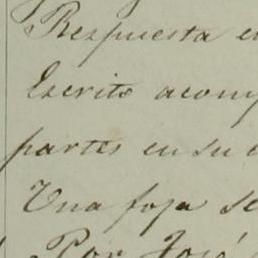 Respuesta e
Escrito acom
partes en su c
Una foja se
Por José